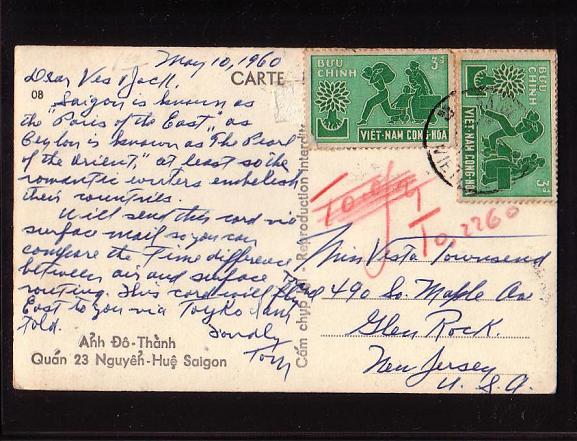 May 10, 1960
CARTE
Dear Ves & Jack,
08
Saigon is known as
the "Paris of the East", as
Ceylon is known as "The Pearl
of the Orient," at least so the
romantic writers embelish
their countries.
Will send this card via
surface mail so you can
compare the time difference
between air and surface
routing. This card will go
East to you via Toyko I am
told.
Fondly
Tom
Ảnh Đô-Thành
Quán 23 Nguyễn-Huệ Saigon
Cấm chụp lại - Reproduction interdite
BƯU CHÍNH
3đ
VIỆT-NAM CỘNG-HÒA
BƯU CHÍNH
3đ
VIỆT-NAM CỘNG-HÒA
VIET
T 0,2260
Miss Vesta Townsend
490 So. Maple Ave
Glen Rock.
New Jersey
U. S. A.